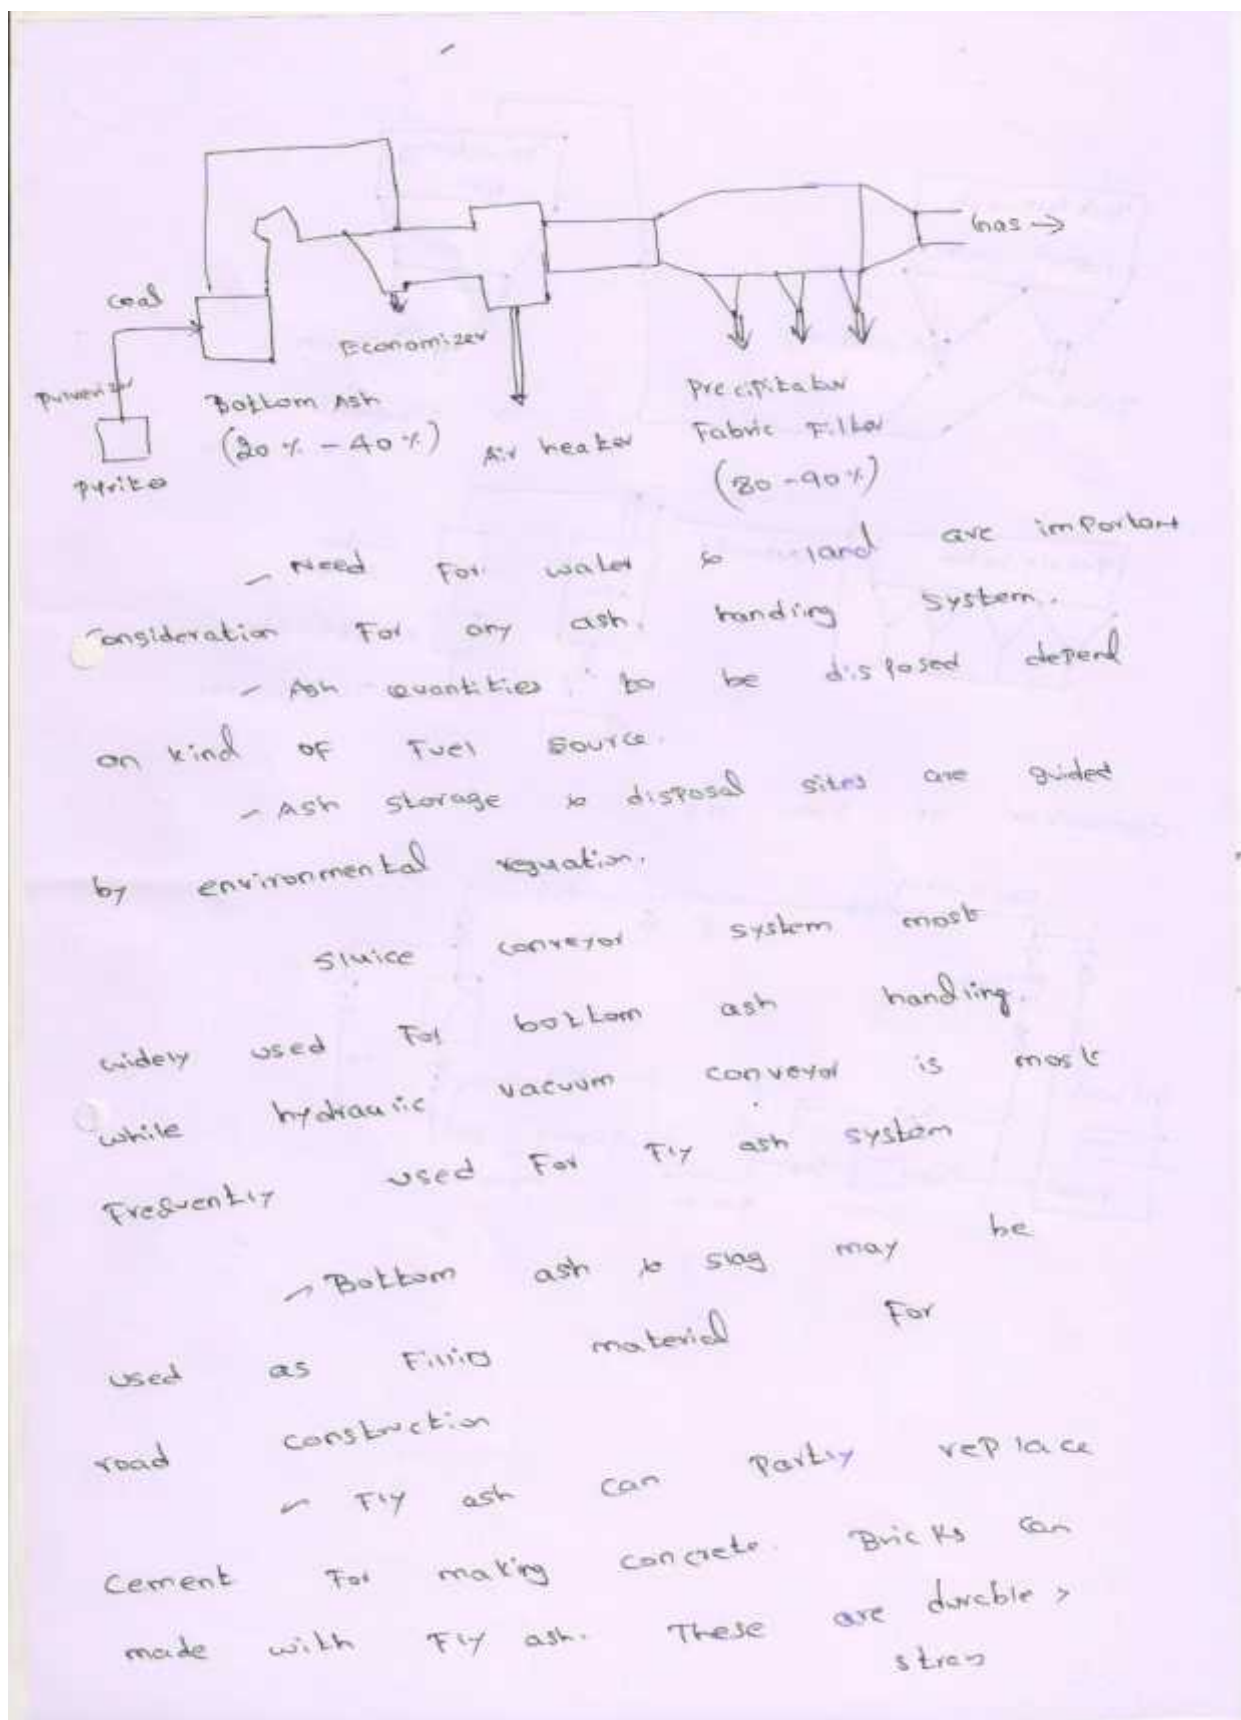 Gas →
Coal
Economizer
Pulverizer
Bottom Ash
(20 % - 40 %)
Air heater
Pyrites
Precipitator
Fabric Filter
(80 - 90 %)
- Need For water & land are important
Consideration For any ash. handling system.
- Ash quantities to be disposed depend
on kind of Fuel source.
- Ash storage & disposal sites are guided
by environmental reguation.
Sluice conveyor system most
widely used For bottom ash handling.
while hydraulic vacuum conveyor is most
Frequently used For Fly ash system
- Bottom ash & slag may be
used as Filling material For
road construction
- Fly ash can Partly replace
Cement For making concrete. Bricks can
made with Fly ash. These are durable >